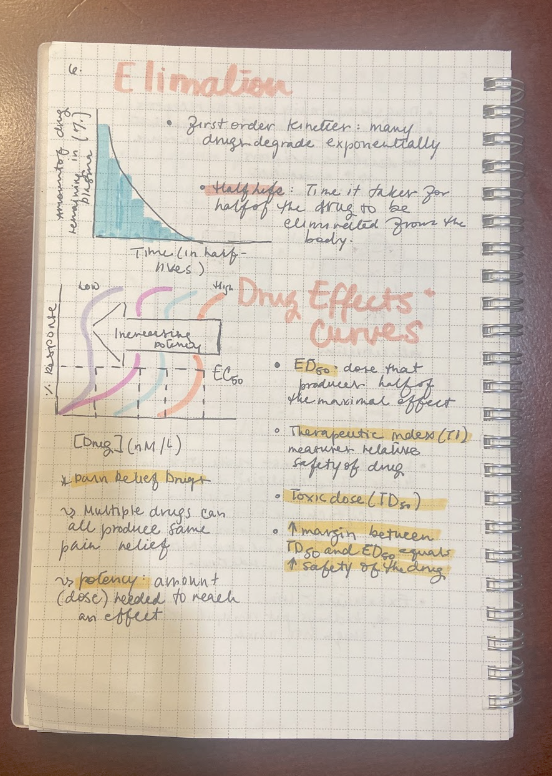 6.
Elimation
• First order kinetics: many
drugs degrade exponentially
amount of drug
remaining in (%)
plasma
• Half life: Time it takes for
half of the drug to be
eliminated from the
body.
Time (in half-
lives)
Drug Effects •
Curves
Low
High
Increasing
potency
% Response
EC50
[Drug] (nM/L)
• ED50: dose that
produces half of
the maximal effect
• Therapeutic index (TI)
measures relative
safety of drug
• Toxic dose (TD50)
• ↑ margin between
TD50 and ED50 equals
↑ safety of the drug
* Pain Relief Drugs
↳ Multiple drugs can
all produce same
pain relief
↳ potency: amount
(dose) needed to reach
an effect